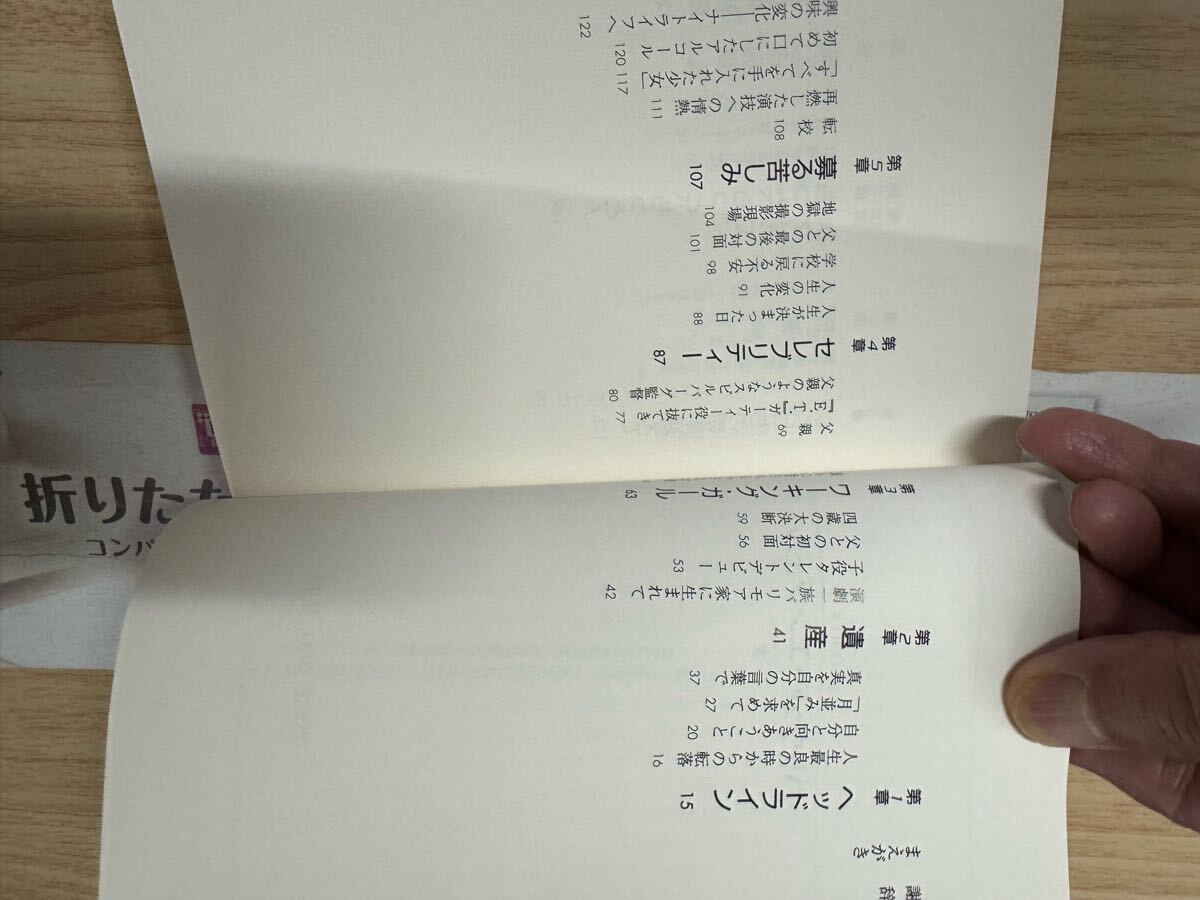 謝辞
まえがき
第1章 ヘッドライン 15
人生最良の時からの転落 16
自分と向きあうこと 20
「月並み」を求めて 27
真実を自分の言葉で 37
第2章 遺産 41
演劇一族バリモア家に生まれて 42
子役タレントデビュー 53
父との初対面 56
四歳の大決断 59
第3章 ワーキング・ガール 63
父親 69
『E.T.』ガーティー役に抜てき 77
父親のようなスピルバーグ監督 80
第4章 セレブリティー 87
人生が決まった日 88
人生の変化 91
学校に戻る不安 98
父との最後の対面 101
地獄の撮影現場 104
第5章 募る苦しみ 107
転校 108
再燃した演技への情熱 111
「すべてを手に入れた少女」 117
初めて口にしたアルコール 120
興味の変化──ナイトライフへ 122
折りたた
コンパ